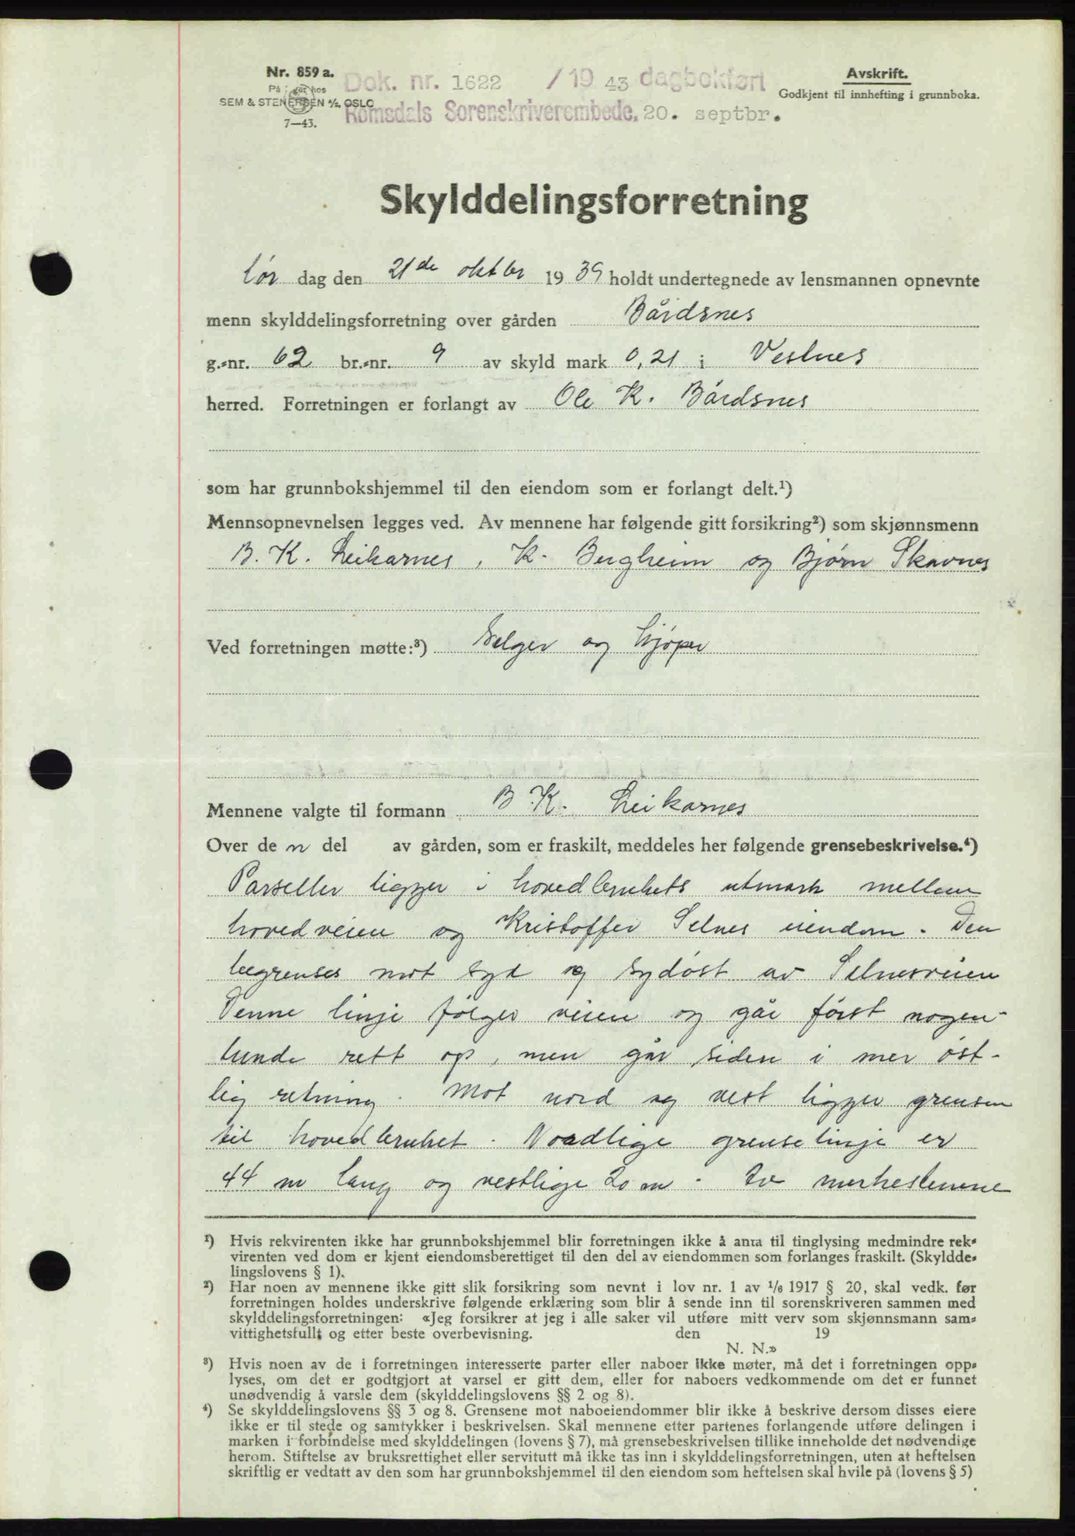 Nr. 859 a.
På lager hos
SEM & STENERSEN A/S, OSLO
7—43.
Dok. nr. 1622 /19 43 dagbokført
Romsdals Sorenskriverembede, 20. septbr.
Avskrift.
Godkjent til innhefting i grunnboka.
Skylddelingsforretning
Lør dag den 21de oktbr 1939 holdt undertegnede av lensmannen opnevnte
menn skylddelingsforretning over gården Bårdsnes
g.-nr. 62 br.-nr. 9 av skyld mark 0,21 i Vestnes
herred. Forretningen er forlangt av Ole K. Bårdsnes
som har grunnbokshjemmel til den eiendom som er forlangt delt.¹)
Mennsopnevnelsen legges ved. Av mennene har følgende gitt forsikring²) som skjønnsmenn
B. K. Leikarnes, K. Bergheim og Bjørn Skavnes
Ved forretningen møtte:³) Selger og kjøper
Mennene valgte til formann B. K. Leikarnes
Over de n del av gården, som er fraskilt, meddeles her følgende grensebeskrivelse.⁴)
Parsellen ligger i hovedbrukets utmark mellem
hovedveien og Kristoffer Selnes eiendom. Den
begrenses mot syd og sydøst av Selnesveien
Denne linje følger veien og går først nogen-
lunde rett op, men går siden i mer øst-
lig retning. Mot nord og vest ligger grensen
til hovedbruket. Nordlige grenselinje er
44 m lang og vestlige 20 m. De merkestenene
¹) Hvis rekvirenten ikke har grunnbokshjemmel blir forretningen ikke å anta til tinglysing medmindre rek-
virenten ved dom er kjent eiendomsberettiget til den del av eiendommen som forlanges fraskilt. (Skyldde-
lingslovens § 1).
²) Har noen av mennene ikke gitt slik forsikring som nevnt i lov nr. 1 av 1/6 1917 § 20, skal vedk. før
forretningen holdes underskrive følgende erklæring som blir å sende inn til sorenskriveren sammen med
skylddelingsforretningen: «Jeg forsikrer at jeg i alle saker vil utføre mitt verv som skjønnsmann sam-
vittighetsfullt og etter beste overbevisning. den 19
N. N.»
³) Hvis noen av de i forretningen interesserte parter eller naboer ikke møter, må det i forretningen opp-
lyses, om det er godtgjort at varsel er gitt dem, eller for naboers vedkommende om det er funnet
unødvendig å varsle dem (skylddelingslovens §§ 2 og 8).
⁴) Se skylddelingslovens §§ 3 og 8. Grensene mot naboeiendommer blir ikke å beskrive dersom disses eiere
ikke er til stede og samtykker i beskrivelsen. Skal mennene etter partenes forlangende utføre delingen i
marken i forbindelse med skylddelingen (lovens § 7), må grensebeskrivelsen tillike inneholde det nødvendige
herom. Stiftelse av bruksrettighet eller servitutt må ikke tas inn i skylddelingsforretningen, uten at heftelsen
skriftlig er vedtatt av den som har grunnbokshjemmel til den eiendom som heftelsen skal hvile på (lovens § 5)